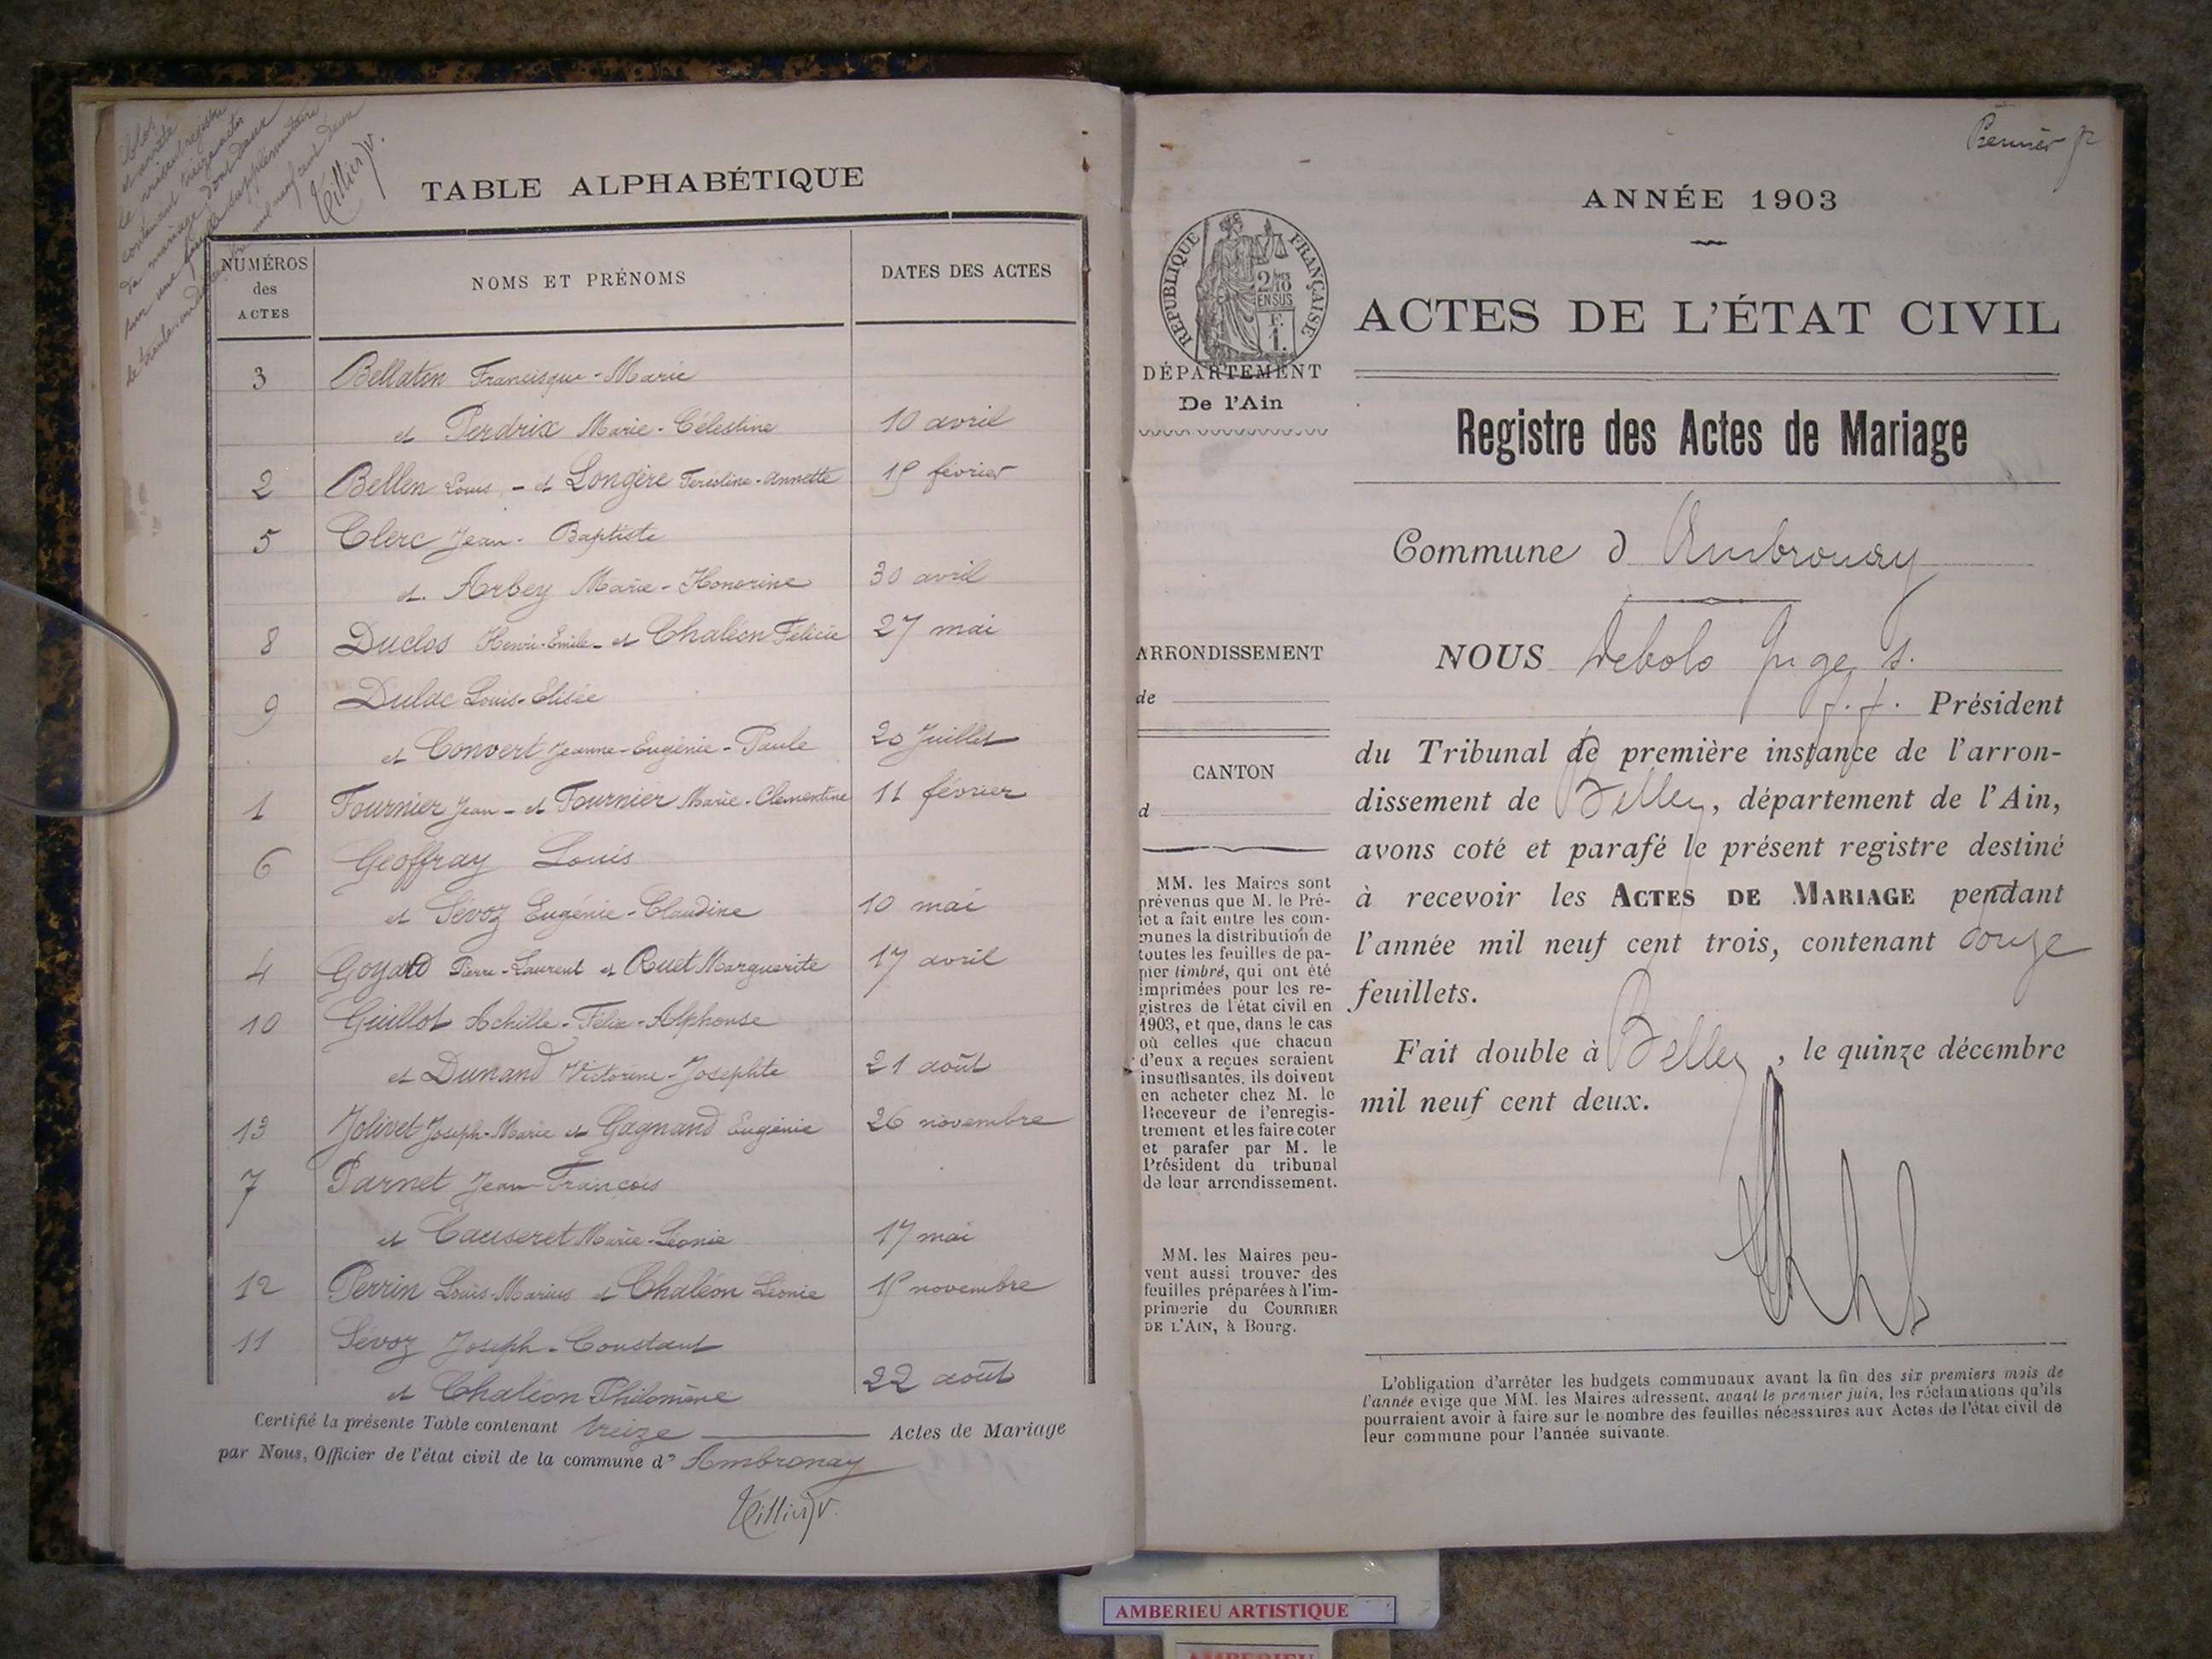 Clos
et arrêté
le présent registre
contenant treize actes
de mariage dont deux
sur une feuille supplémentaire
le trente un décembre mil neuf cent deux
Tillier
TABLE ALPHABÉTIQUE
NUMÉROS
des
ACTES
NOMS ET PRÉNOMS
DATES DES ACTES
3 Bellaton Francisque-Marie
et Perdrix Marie-Célestine 10 avril
2 Bellen Louis - et Longère Annette 19 février
5 Clerc Jean-Baptiste
et Arbey Marie-Honorine 30 avril
8 Duclos Henri-Emile - et Chaléon Félicie 27 mai
9 Dulac Louis-Elisée
et Convert Jeanne-Eugénie-Paule 20 Juillet
1 Fournier Jean - et Fournier Marie-Clementine 11 février
6 Geoffray Louis
et Sévoz Eugénie-Claudine 10 mai
4 Goyard Pierre-Laurent et Ruet Marguerite 17 avril
10 Guillot Achille-Félix-Alphonse
et Dunand Victorine-Josephte 21 août
13 Jolivet Joseph-Marie et Gagnand Eugénie 26 novembre
7 Parnet Jean-François
et Causeret Marie-Léonie 17 mai
12 Perrin Louis-Marius et Chaléon Léonie 19 novembre
11 Sévoz Joseph-Constant
et Chaléon Philomène 22 août
Certifié la présente Table contenant treize Actes de Mariage
par Nous, Officier de l'état civil de la commune d' Ambronay
Tillier
Premier
ANNÉE 1903
RÉPUBLIQUE FRANÇAISE
2/10
EN SUS
F.
1.
ACTES DE L'ÉTAT CIVIL
DÉPARTEMENT
De l'Ain
Registre des Actes de Mariage
Commune d Ambronay
ARRONDISSEMENT
de
CANTON
d
NOUS Debolo Juge s.
f.f. Président
du Tribunal de première instance de l'arron-
dissement de Belley, département de l'Ain,
avons coté et parafé le présent registre destiné
à recevoir les ACTES DE MARIAGE pendant
l'année mil neuf cent trois, contenant douze
feuillets.
Fait double à Belley, le quinze décembre
mil neuf cent deux.
MM. les Maires sont
prévenus que M. le Pré-
fet a fait entre les com-
munes la distribution de
toutes les feuilles de pa-
pier timbré, qui ont été
imprimées pour les re-
gistres de l'état civil en
1903, et que, dans le cas
où celles que chacun
d'eux a reçues seraient
insuffisantes, ils doivent
en acheter chez M. le
Receveur de l'enregis-
trement et les faire coter
et parafer par M. le
Président du tribunal
de leur arrondissement.
MM. les Maires peu-
vent aussi trouver des
feuilles préparées à l'im-
primerie du COURRIER
DE L'AIN, à Bourg.
L'obligation d'arrêter les budgets communaux avant la fin des six premiers mois de
l'année exige que MM. les Maires adressent, avant le premier juin, les réclamations qu'ils
pourraient avoir à faire sur le nombre des feuilles nécessaires aux Actes de l'état civil de
leur commune pour l'année suivante.
AMBERIEU ARTISTIQUE
AMBERIEU